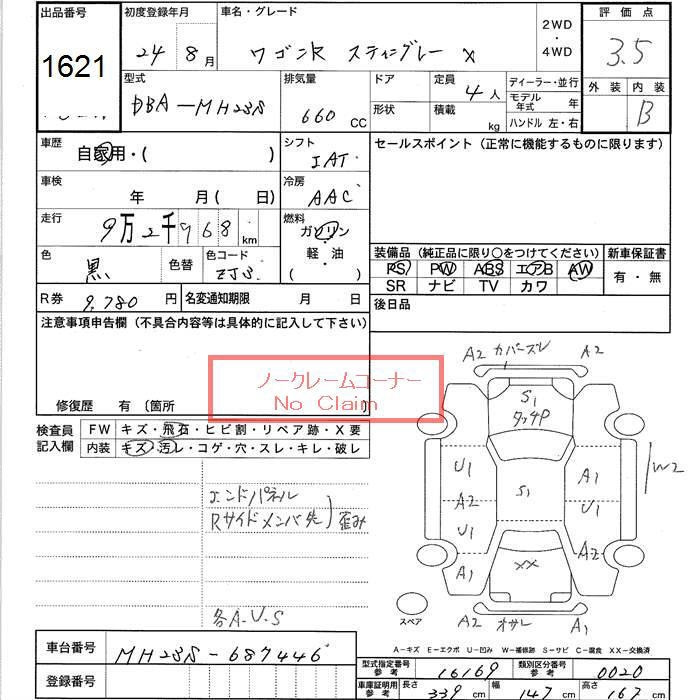 出品番号 初度登録年月 車名・グレード 2WD・4WD 評価点
1621 24 8月 ワゴンR スティングレー X 3.5
型式 排気量 ドア 定員 4人 ディーラー・並行 外装 内装
DBA-MH23S 660 CC 形状 積載 kg モデル年式 年 B
ハンドル 左・右
車歴 自家用・( ) シフト IAT セールスポイント(正常に機能するものに限ります)
車検 年 月( 日) 冷房 AAC
走行 9万2千968km 燃料 ガソリン
軽・油
( )
色 黒 色替 色コード ZJ3
装備品(純正品に限り○をつけてください) 新車保証書
PS PW ABS エアB AW 有・無
SR ナビ TV カワ
R券 9,780円 名変通知期限 月 日 後日品
注意事項申告欄(不具合内容等は具体的に記入して下さい)
ノークレームコーナー
No Claim
修復歴 有 〔箇所
検査員記入欄 FW キズ・飛石・ヒビ割・リペア跡・X要
内装 キズ・汚レ・コゲ・穴・スレ・キレ・破レ
エンドパネル
Rサイドメンバ先 歪み
各A.U.S
A2 カバーズレ A2
S1
タッチP
U1 A1 W2
S1
A2 U1
U1 A2
XX
A1
スペア A2 オサレ A1
A-キズ E-エクボ U-凹み W-補修跡 S-サビ C-腐食 XX-交換済
車台番号 MH23S-687446
型式指定番号 参考 16169 類別区分番号 参考 0020
登録番号
車庫証明用 参考 長さ 339cm 幅 147cm 高さ 167cm